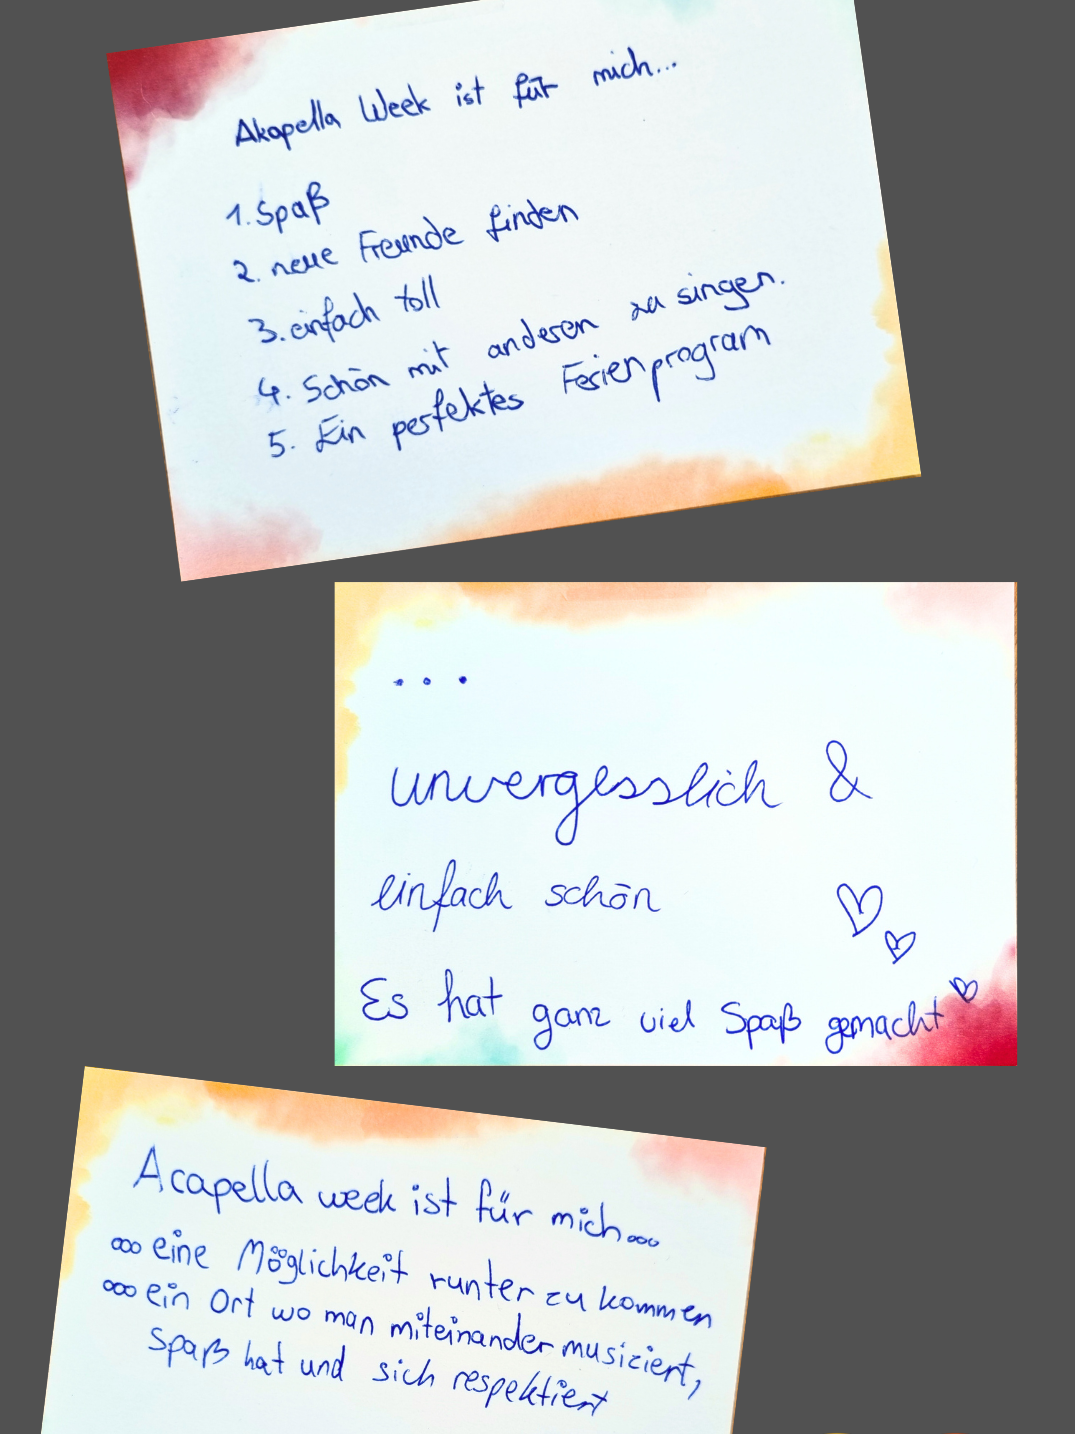 Akapella Week ist für mich...
1. Spaß
2. neue Freunde finden
3. einfach toll
4. Schön mit anderen zu singen.
5. Ein perfektes Ferienprogram
...
unvergesslich &
einfach schön
Es hat ganz viel Spaß gemacht
Acapella week ist für mich...
... eine Möglichkeit runter zu kommen
... ein Ort wo man miteinander musiziert,
Spaß hat und sich respektiert